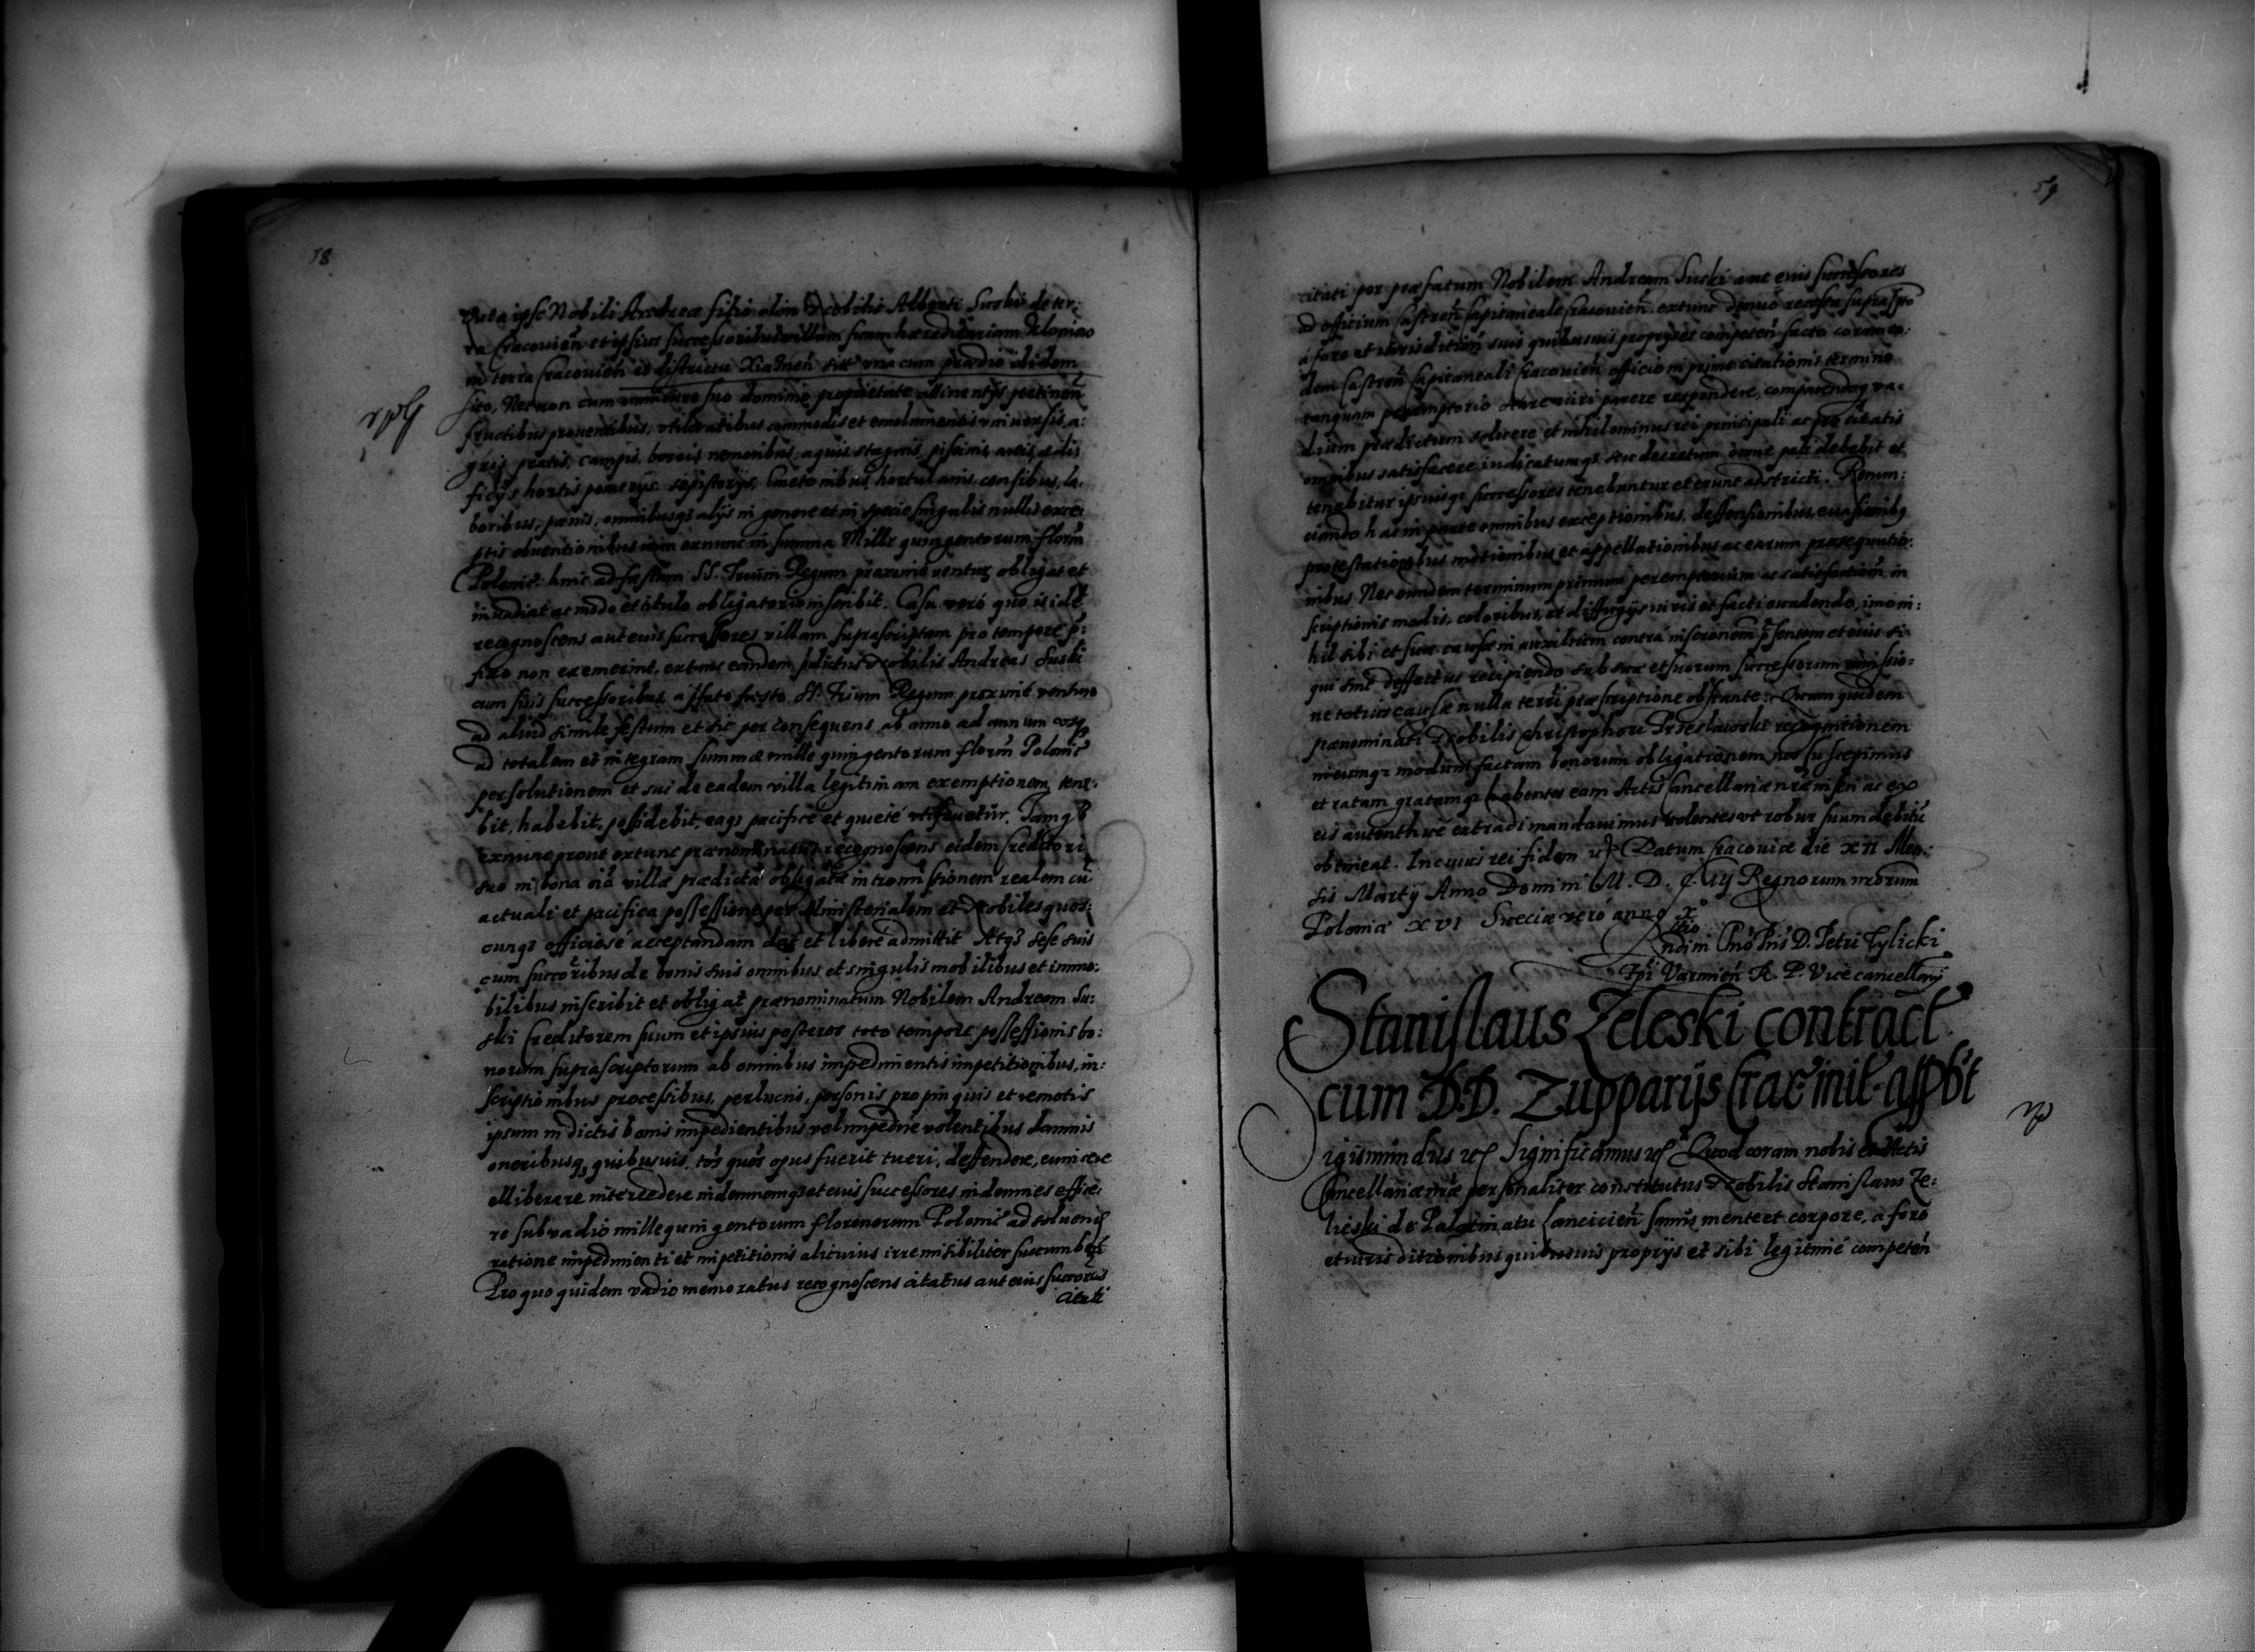 58
Quia ipse Nobili Andreæ filio olim Nobilis Alberti Suski de ter:
ra Cracouien̄ et ipsius successoribus villam suam hæreditariam
in terra Cracouien̄ et districtu Xiaznen̄ sitā vna cum prædio ibidem
sito, Nec non cum omni iure suo dominio proprietate attinentÿs pertinen̄
fructibus prouentibus, vtilitatibus commodis et emolumentis vniuersis, a:
gris pratis, campis, borris nemoribus, aquis stagnis, piscinis, areis, ædi
ficÿs hortis pomerÿs sepistorÿs, Cmetonibus, hortulanis, censibus, la:
boribus, pœnis, omnibusq3 alÿs in genere et in specie singulis nullis exce:
ptis obuentionibus exnunc in summa Mille quingentorum flore͂n
Polonic: hinc ad festum SS. Trium Regum proximè ventur̄ obligat et
inuadiat ac modo et titulo obligatorio inscribit. Casu verò quo is idē
recognoscens aut eius successores villam suprascriptam pro tempore p̄:
fixo non exemerint, extunc eandem p̄dictus Nobilis Andreas Suski
cum suis successoribus, a p̄fato festo SS. Trium Regum proximè venturo
ad aliud simile festum et sic per consequens ab anno ad annum vsq3
ad totalem et integram summæ mille quingentorum flore͂n Polonic
persolutionem et sui de eadem villa legitimam exemptionem, tene:
bit, habebit, possidebit, eaq3 pacificè et quietè vtifruetur. Iamq3
exnunc prout extunc prænominatus recognoscens eidem Creditori
suo in bona oīa villæ prædictæ obligatæ intromissionem realem cū
actuali et pacifica possessione per Ministerialem et Nobiles quos:
cunq3 officiosè acceptandam dat et liberè admittit Atq3 sese suis
cum succorībus de bonis suis omnibus et singulis mobilibus et immo:
bilibus inscribit et obligat prænominatum Nobilem Andream Su:
ski Creditorem suum et ipsius posteros toto tempore possessionis bo:
norum suprascriptorum ab omnibus impedimentis impetitionibus, in:
scriptionibus processibus, perlucris, personis propinquis et remotis
ipsum in dictis bonis impedientibus vel impedire volentibus damnis
oneribusq3 quibusuis, tōs quōs opus fuerit tueri, deffendere, euincere
elliberare intercedere indemnemq3 et eius successores indemnes effice:
re sub vadio mille quingentorum florenorum Polonic ad soluend
ratione impedimenti et impetitionis alicuius irremisibiliter succumben̄
Pro quo quidem vadio memoratus recognoscens citatus aut eius succorēs
citati
59
citati per præfatum Nobilem Andream Suski aut eius successores
ad officium Castren̄ Capitaneale Cracouien̄. extunc
à foro et iurisditiōn suis quibusuis proprÿs et competen̄ facto coram eo:
dem Castren̄ Capitaneali Cracouien̄ officio in primo citationis termino
tanquam peremptorio parere respondere, comparendoq3 va:
dium prædictum soluere et nihilominus rei principali ac pro citatis
omnibus satisfacere iudicatumq3 seu decretum omne pati debebit et
tenebitur ipsiusq3 successores tenebuntur et erunt adstricti. Renun:
ciando hac in parte omnibus exceptionibus, deffensionibus, euasionibq
protestationibus motionibus et appellationibus ac earum prosequutio:
nibus Nec eundem terminum primum peremptorium ac satisfactiōn in
scriptionis modis, coloribus, et diffugÿs iuris et facti euadendo, imo ni:
hil sibi et suæ causæ in auxilium contra inscrōnem p̄sentem et eius si
qui sint deffectus recipiendo sub suæ et suorum successorum amissio:
ne totius causæ nulla terrī præscriptione obstante. Quam quidem
prænominati Nobilis Christophori recognitionem
inieumq3 modum factam bonorum obligationem nos suscepimus
et ratam gratamq3 habentes eam Actis Cancellariæ nræ inseri ac ex
eis autenthicè extradi mandauimus volentes vt robur suum debitū
obtineat. In cuius rei fidem Datum Cracouiæ die XII Men:
sis Martÿ Anno Domini M. D. C. IIÿ Regnorum nrōrum
Poloniæ XVI Sueciæ verò anno X°
Rndīmi Chrō Pris D. Petri Tylicki
Epi Varmien̄ R. P. Vicecancellarÿ
Stanislaus Zeleski contract
cum D.D. Zupparÿs Crac init. appbt
Sigismundus Significamus Quod coram nobis et Actis
Cancellariæ nræ personaliter constitutus Nobilis Stanislaus Ze:
lieski de Palatinatu Lancicien̄ sanus mente et corpore, à foro
et iurisditionibus quibusuis proprÿs et sibi legitimè competen̄